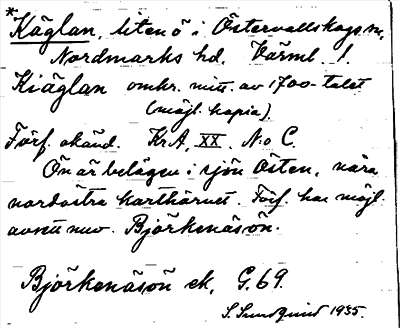 *Käglan, liten ö i Östervallskogs sn,
Nordmarks hd. Värml. !
Kiäglan omkr. mitt. av 1700-talet
(möjl. kopia).
Förf. okänd. KrA, XX. N:o C.
Ön är belägen i sjön Östen, nära
nordöstra karthörnet. Förf. har möjl.
avsett nuv. Björkenäsön.
Björkenäsön ek. G. 69.
S. Sundquist 1935.